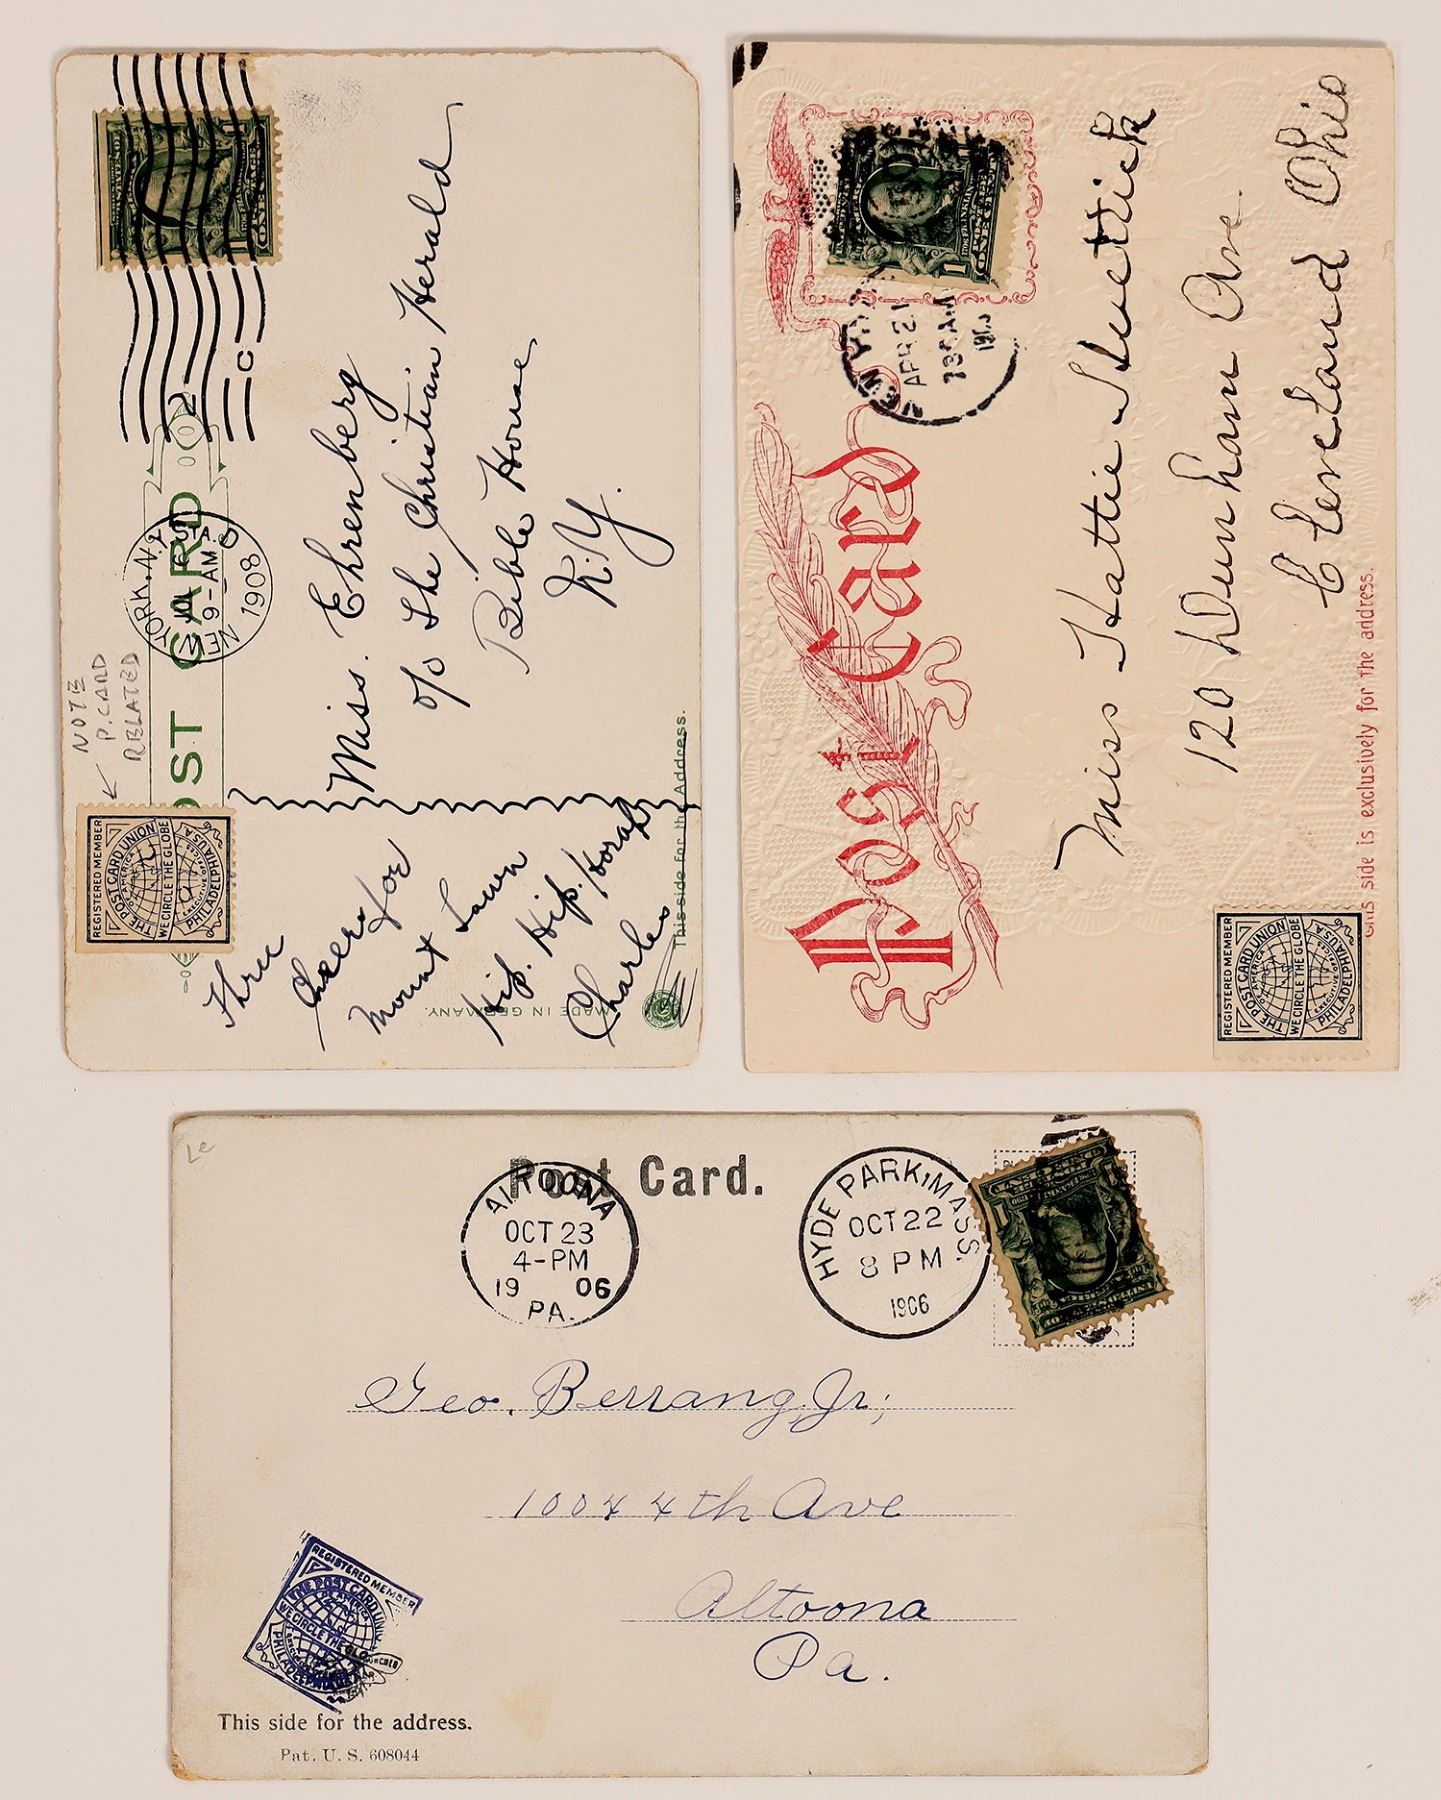 POST CARD
NOTE
P. CARD
RELATED
YORK, N.Y.
STA.
9-AM
1908
C
Miss. Ehrenberg
c/o The Christian Herald
Bible House
N.Y.
REGISTERED MEMBER
THE POST CARD UNION
OF AMERICA
WE CIRCLE THE GLOBE
EXECUTIVE OFFICES
PHILADELPHIA U.S.A.
Three
Cheers for
Mount Lawn
Hip. Hip. Horah
Charles
MADE IN GERMANY.
This side for the Address.
Post Card
NEW
APR 21
730 AM
Miss Hattie Hvetrick
120 Dunham Ave.
Cleveland Ohio
This side is exclusively for the address.
REGISTERED MEMBER
THE POST CARD UNION
OF AMERICA
WE CIRCLE THE GLOBE
EXECUTIVE OFFICES
PHILADELPHIA U.S.A.
Le
Post Card.
ALTOONA
OCT 23
4-PM
19 06
PA.
HYDE PARK, MASS.
OCT 22
8 PM
1906
Geo. Berrang, Jr;
1004 4th Ave
Altoona
Pa.
REGISTERED MEMBER
THE POST CARD UNION
OF AMERICA
WE CIRCLE THE GLOBE
PHILADELPHIA
This side for the address.
Pat. U. S. 608044